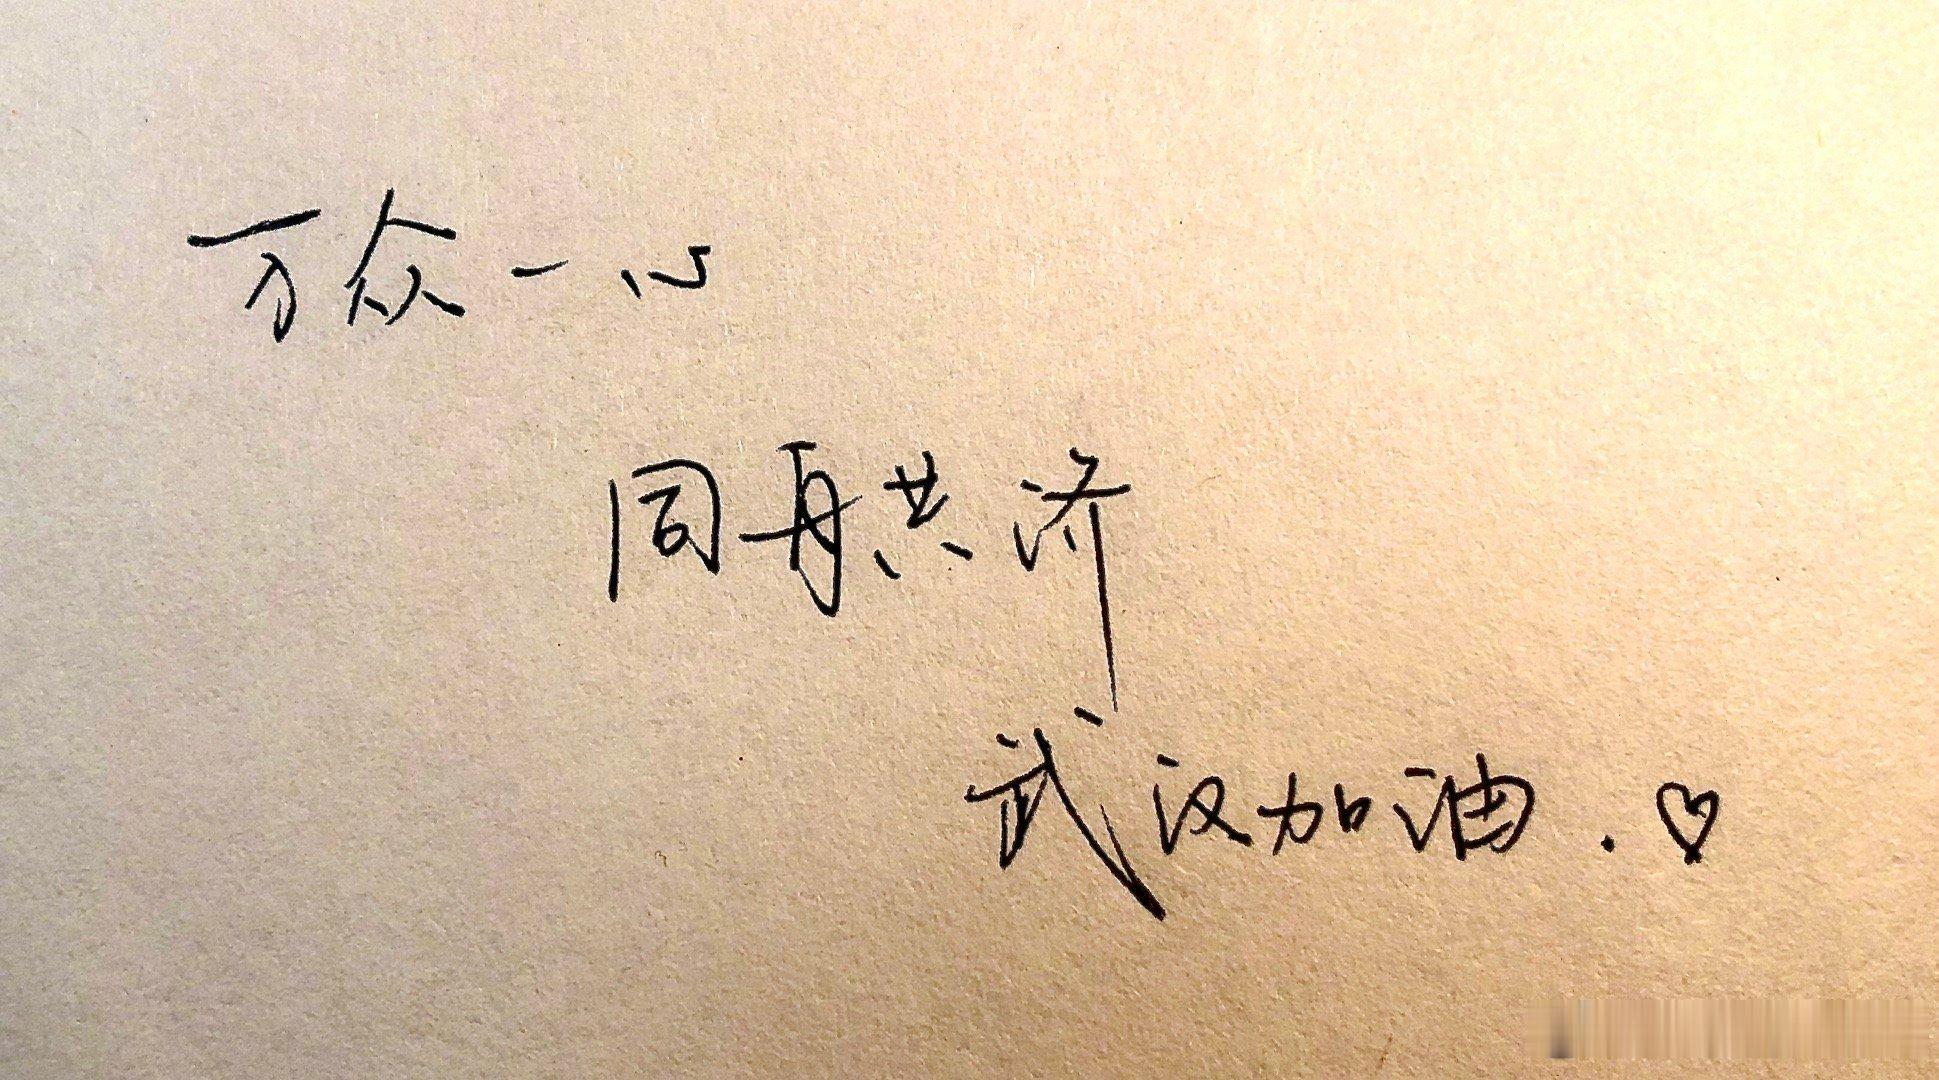 万众一心
同舟共济
武汉加油.♡